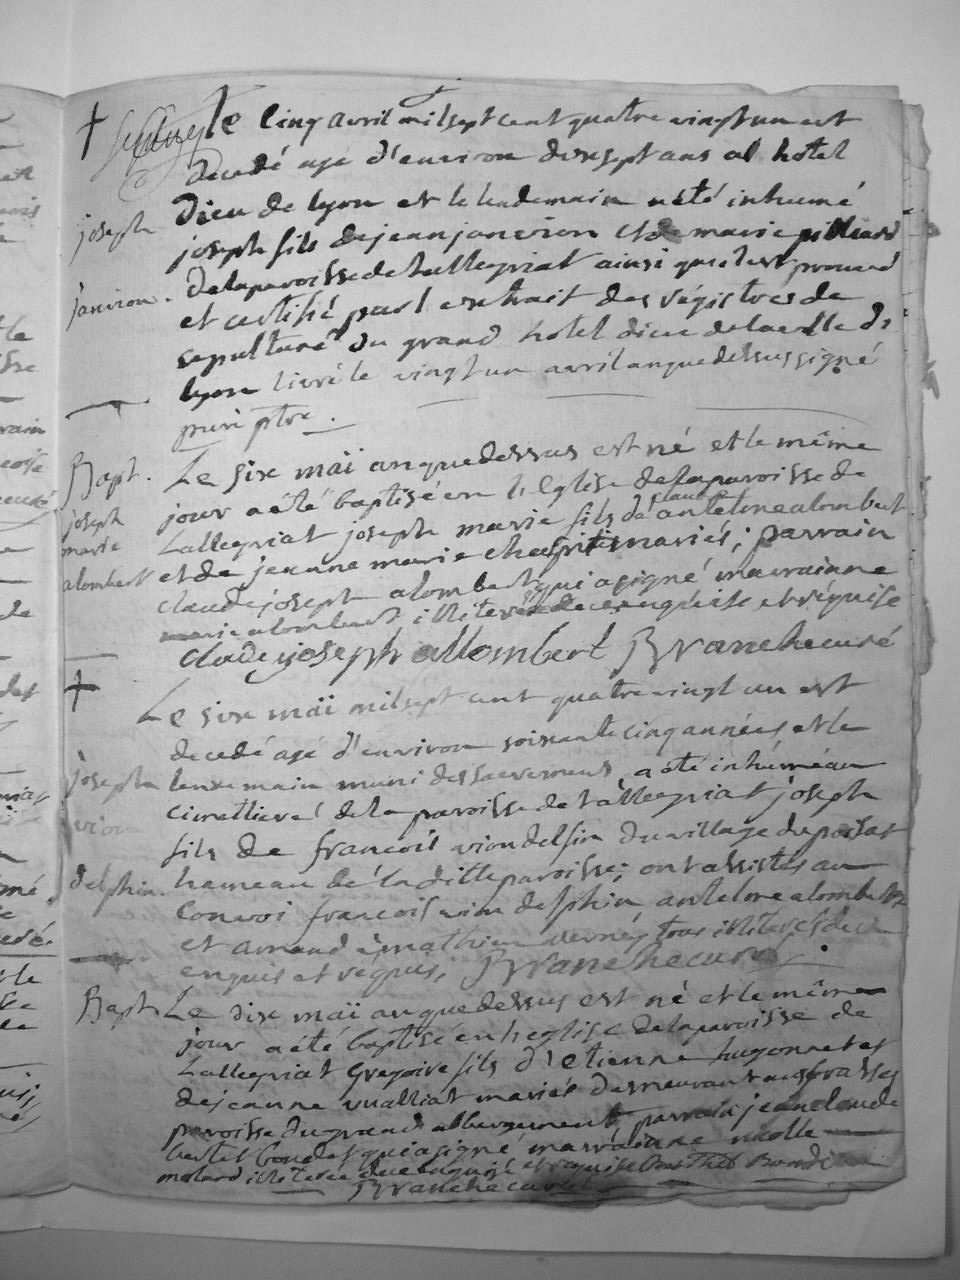 le cinq avril mil sept cent quatre vingt un est
decedé agé d'environ dixsept ans al hotel
Dieu de lyon et le lendemain a été inhumé
joseph
joseph fils de jean janvion et de marie
janvion.
de la paroisse de Lallegriat ainsi quil est prouvé
et certifié par l extrait des régistres de
sepulture du grand hotel dieu de la ville de
lyon livré le vingt un avril an que dessus signé
ptre.
Bapt.
Le six maï an que dessus est né et le même
jour a été baptisé en l'Eglise de la paroisse de
joseph
marie
alombert
claude
Lallegriat joseph marie fils de antelme alombert
et de jeanne marie mariés; parrain
claude joseph alombert qui a signé marrainne
marie alombert illiterée de ce enquise et réquise
Claude joseph allombert Branche curé
Le six maï mil sept cent quatre vingt un est
decedé agé d'environ soixante cinq années et le
joseph
lendemain muni des sacremens a été inhumé au
vion
cimettiere de la paroisse de Lallegriat joseph
fils de francois vion delfin du village
delphin.
hameau de la ditte paroisse; ont assistés au
convoi francois vion delphin antelme alombert
et mathieu tous illiterés de ce
enquis et requis, Branche curé
Bapt.
Le dix maï an que dessus est né et le même
jour a été baptisé en l'eglise de la paroisse de
Lallegriat Gregoire fils d'Etienne hugonnet et
de jeanne vualliat mariés demeurant
paroisse du grand abbergement, parrain jean claude
bertet bondet qui a signé marrainne
molard illiterée de ce enquise et requise
Branche curé